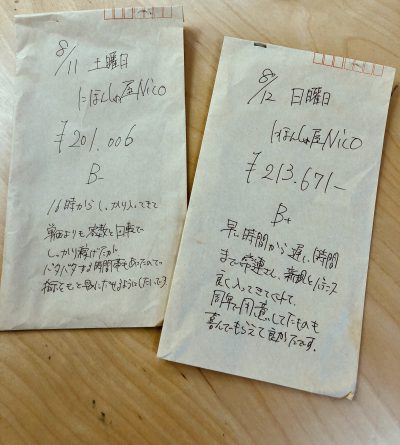 8/11 土曜日
にほんしゅ屋NICO
¥201.006
B-
16時からしっかり入ってきて
単価よりも客数と回転で
しっかり稼げたが
バタバタする時間帯もあったので
8/12 日曜日
にほんしゅ屋NICO
¥213.671-
B+
早い時間から遅い時間
まで常連さん、新規とバランス
良く入ってきてくれて、
用意してたものも
喜んでもらえて良かったです。